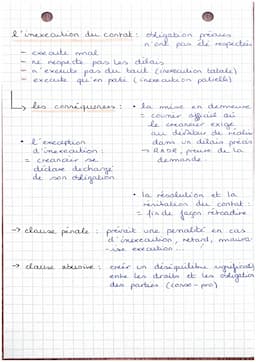 l'inexecution du contrat : obligation prévues
n'ont pas été respectées
- execute mal
- ne respecte pas les délais
- n'execute pas du tout (inexecution totale)
- execute qu'en partie (inexecution partielle)
↳ les conséquences :
• la mise en demeure
= courrier officiel où
le creancier exige
au débiteur de réalis
dans un délais précis
→ RADR, preuve de la
demande.
• l'exception
d'inexecution :
= creancier se
déclare déchargé
de son obligation
• la résolution et la
résiliation du contrat :
= fin de façon rétroactive
→ clause pénale : prévoit une pénalité en cas
d'inexecution, retard, mauva
-ise execution ...
→ clause abusive : créer un déséquilibre significatif
entre les droits et les obligation
des parties (conso - pro)